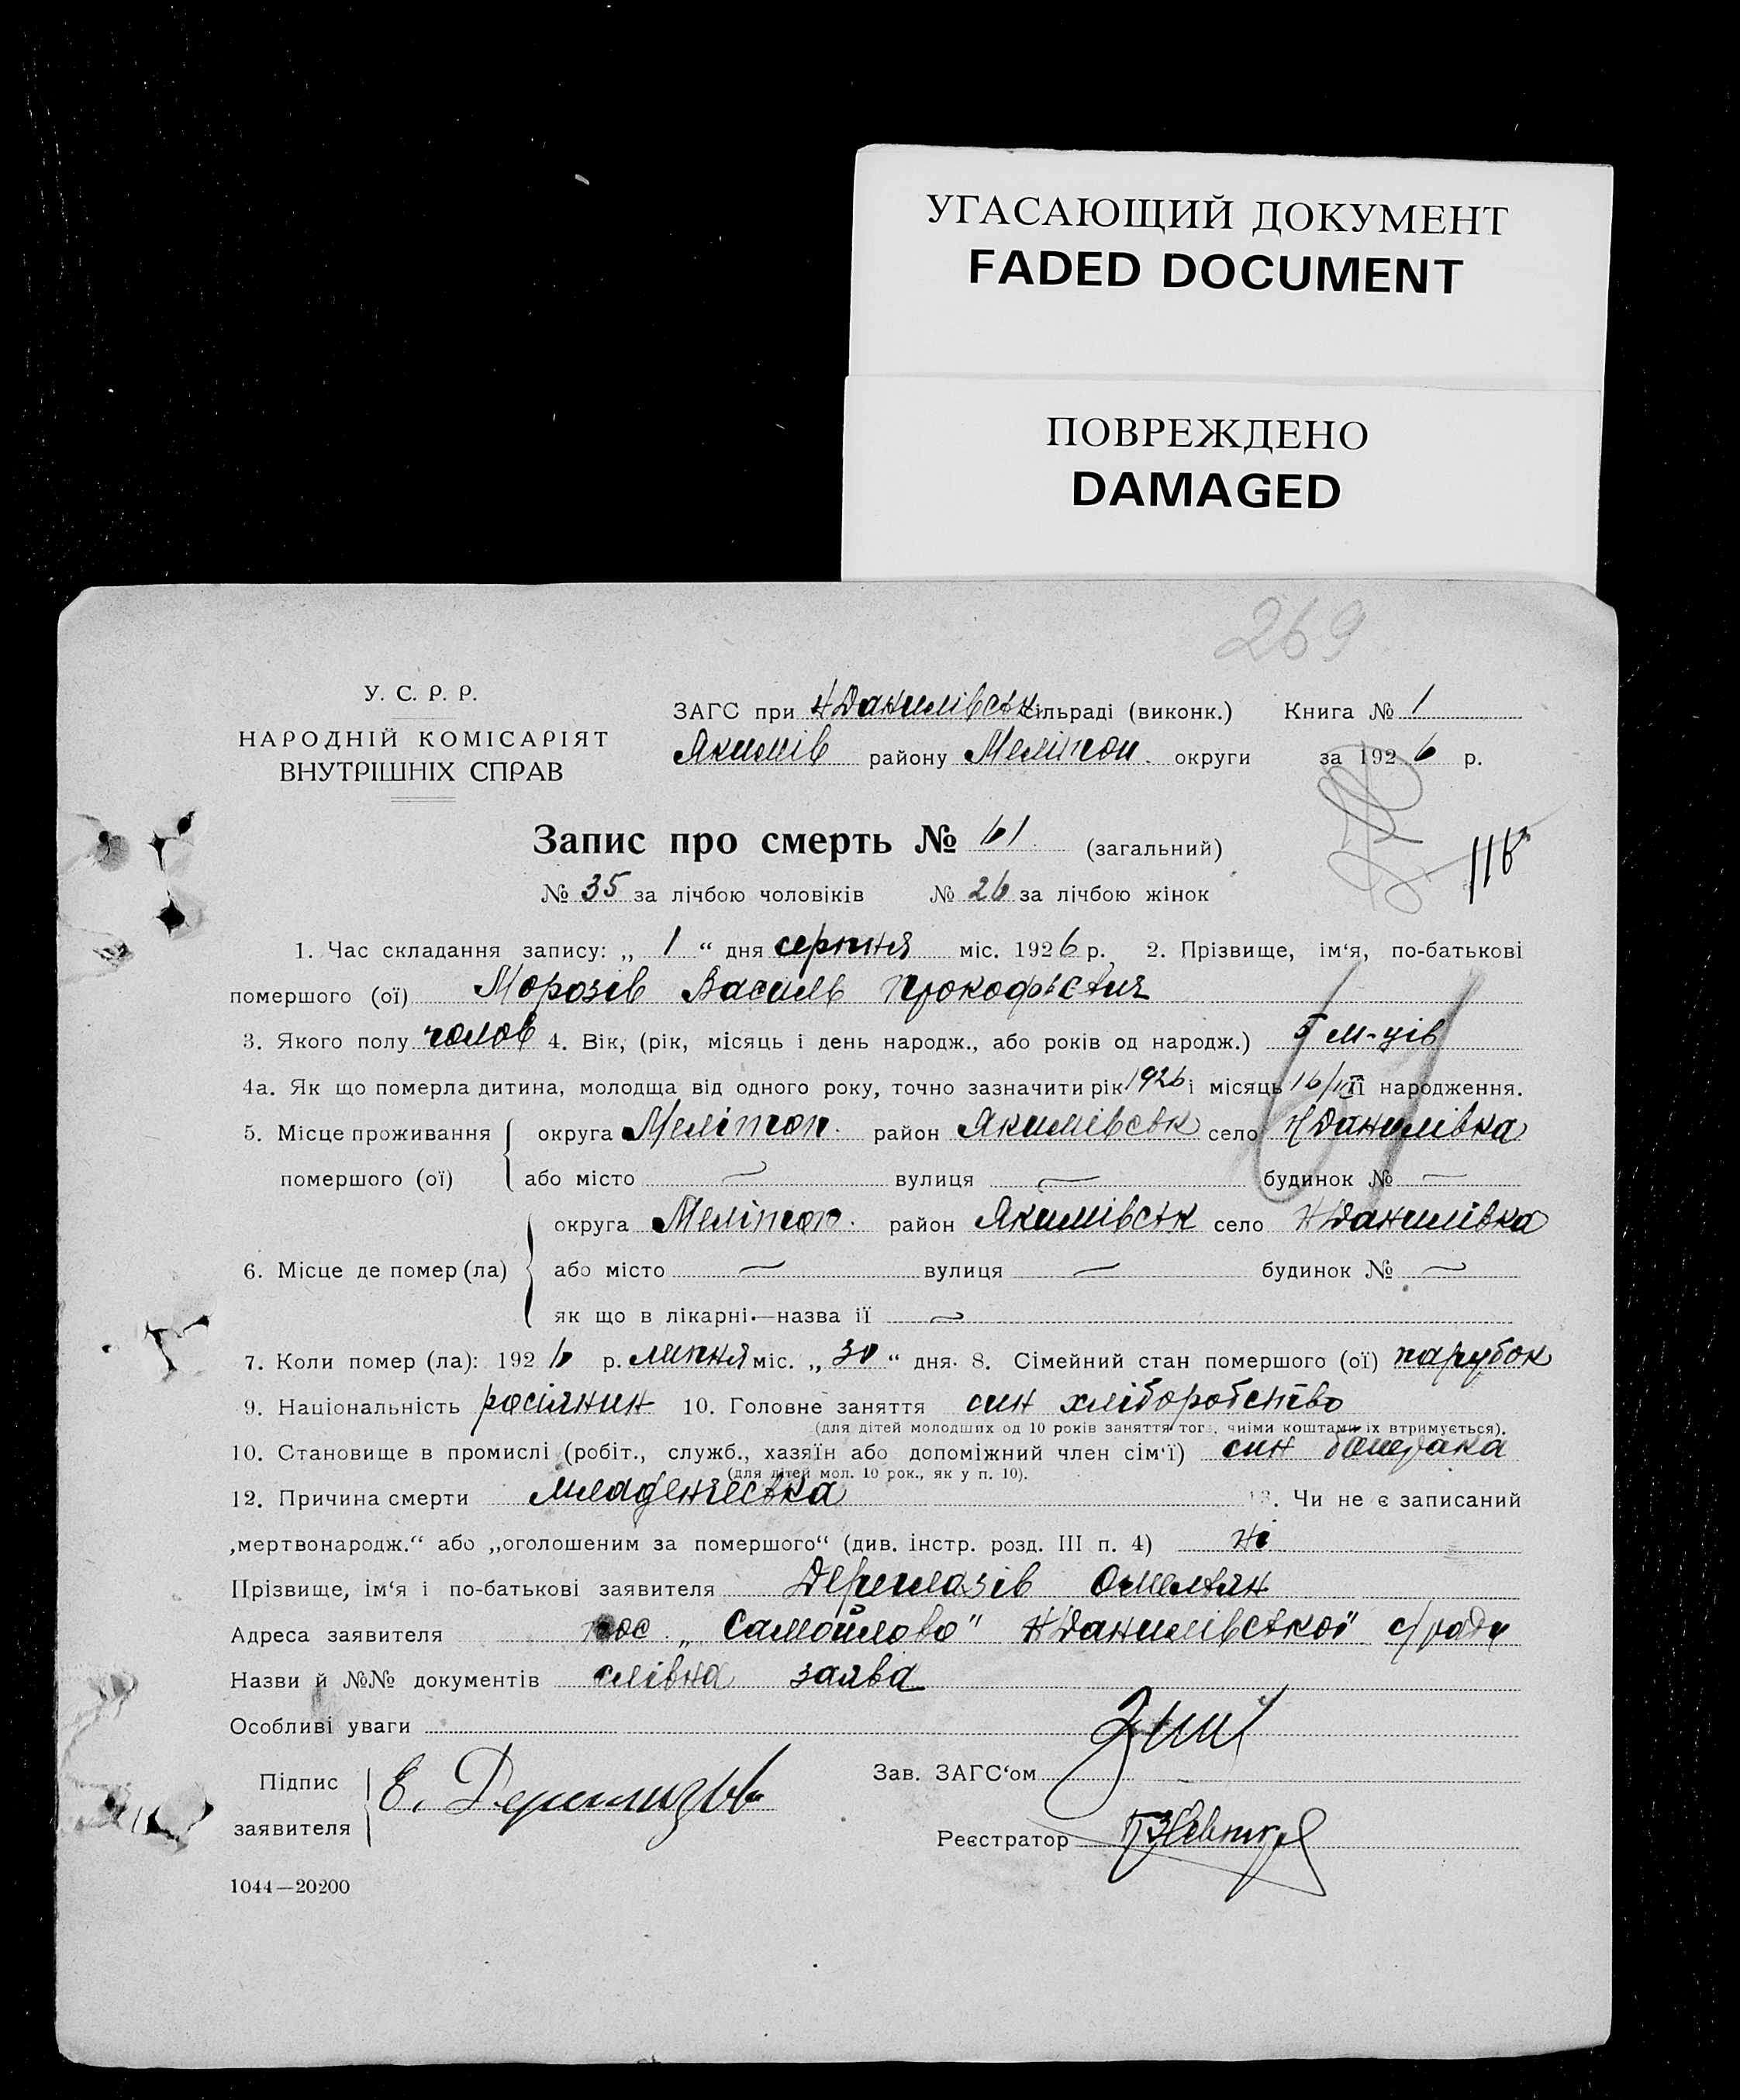 УГАСАЮЩИЙ ДОКУМЕНТ
FADED DOCUMENT
ПОВРЕЖДЕНО
DAMAGED
269
У. С. Р. Р.
НАРОДНІЙ КОМІСАРІЯТ
ВНУТРІШНІХ СПРАВ
ЗАГС при НДанилівськ сільраді (виконк.) Книга № 1
Якимів району Мелітоп. округи за 1926 р.
Запис про смерть № 61 (загальний)
№ 35 за лічбою чоловіків № 26 за лічбою жінок
1. Час складання запису: „ 1 “ дня серпня міс. 1926 р. 2. Прізвище, ім‘я, по-батькові
помершого (ої) Морозів Василь Прокофьєвич
3. Якого полу чолов 4. Вік, (рік, місяць і день народж., або років од народж.) 5 м-ців
4а. Як що померла дитина, молодща від одного року, точно зазначити рік 1926 і місяць 16/III її народження.
5. Місце проживання помершого (ої) округа Мелітоп. район Якимівськ село НДанилівка
або місто — вулиця — будинок № —
6. Місце де помер (ла) округа Мелітоп. район Якимівськ село НДанилівка
або місто — вулиця — будинок № —
як що в лікарні—назва її —
7. Коли помер (ла): 1926 р. липня міс. „ 30 “ дня. 8. Сімейний стан помершого (ої) парубок
9. Національність росіянин 10. Головне заняття син хліборобство
(для дітей молодших од 10 років заняття того, чиїми коштами їх втримується).
10. Становище в промислі (робіт., служб., хазяїн або допоміжний член сім‘ї) син батрака
(для дітей мол. 10 рок., як у п. 10).
12. Причина смерти младенческа 13. Чи не є записаний
„мертвонародж.“ або „оголошеним за помершого“ (див. інстр. розд. III п. 4) ні
Прізвище, ім‘я і по-батькові заявителя Дериглазів Омельян
Адреса заявителя пос „Самойлово" НДанилівської с/ради
Назви й №№ документів слівна заява
Особливі уваги
Підпис заявителя Е. Дериглазов
Зав. ЗАГС‘ом
Реєстратор
1044—20200